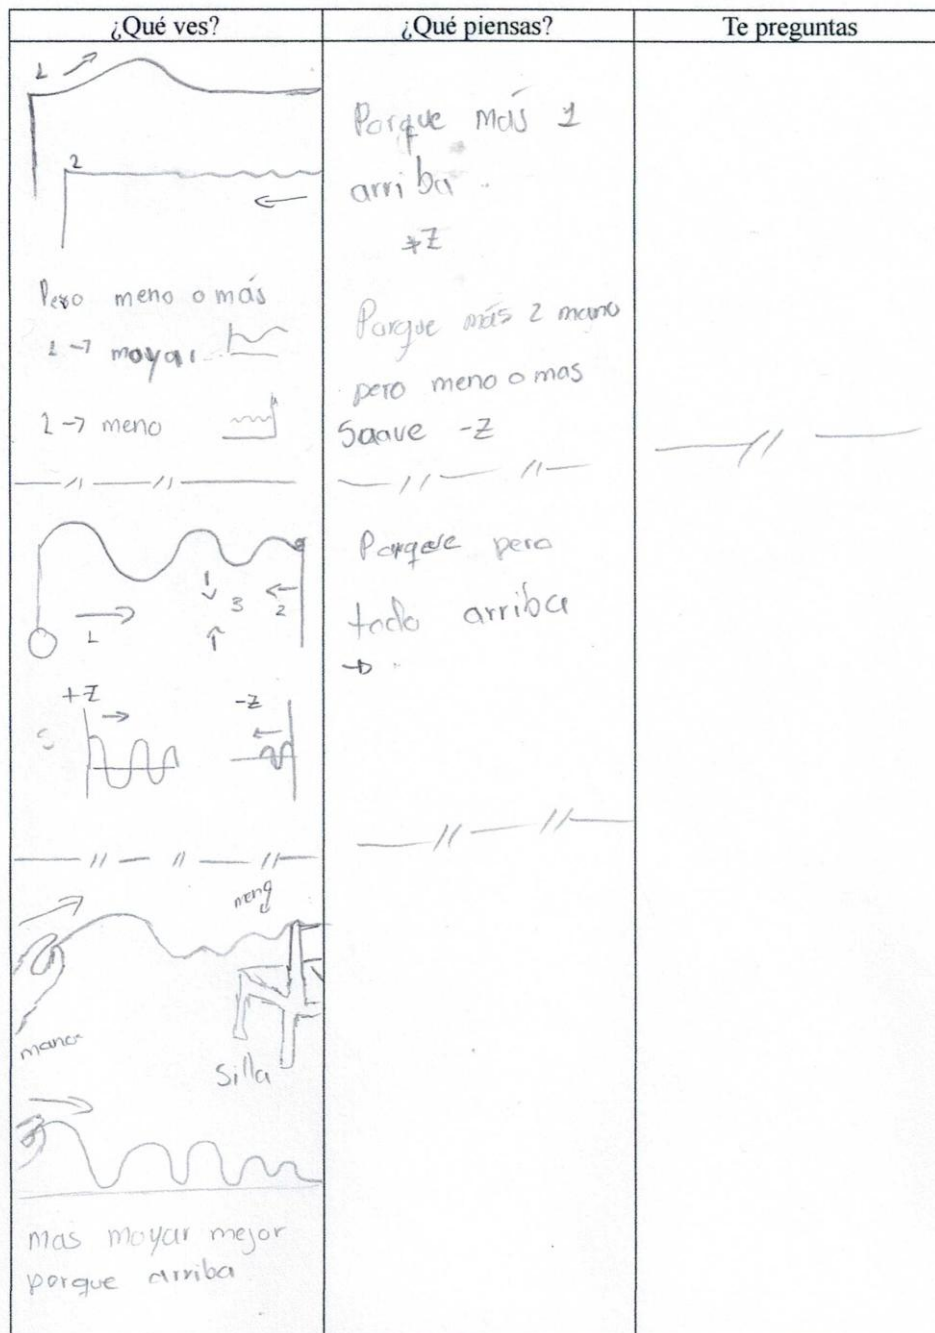 ¿Qué ves?
¿Qué piensas?
Te preguntas
1
2
Pero meno o más
1 → moyar
2 → meno
1
2
3
1
+Z
-Z
meno
mano
Silla
mas moyar mejor
porque arriba
Porque más 1
arriba
+Z
Porque más 2 mano
pero meno o mas
Saave -Z
Porque pero
todo arriba